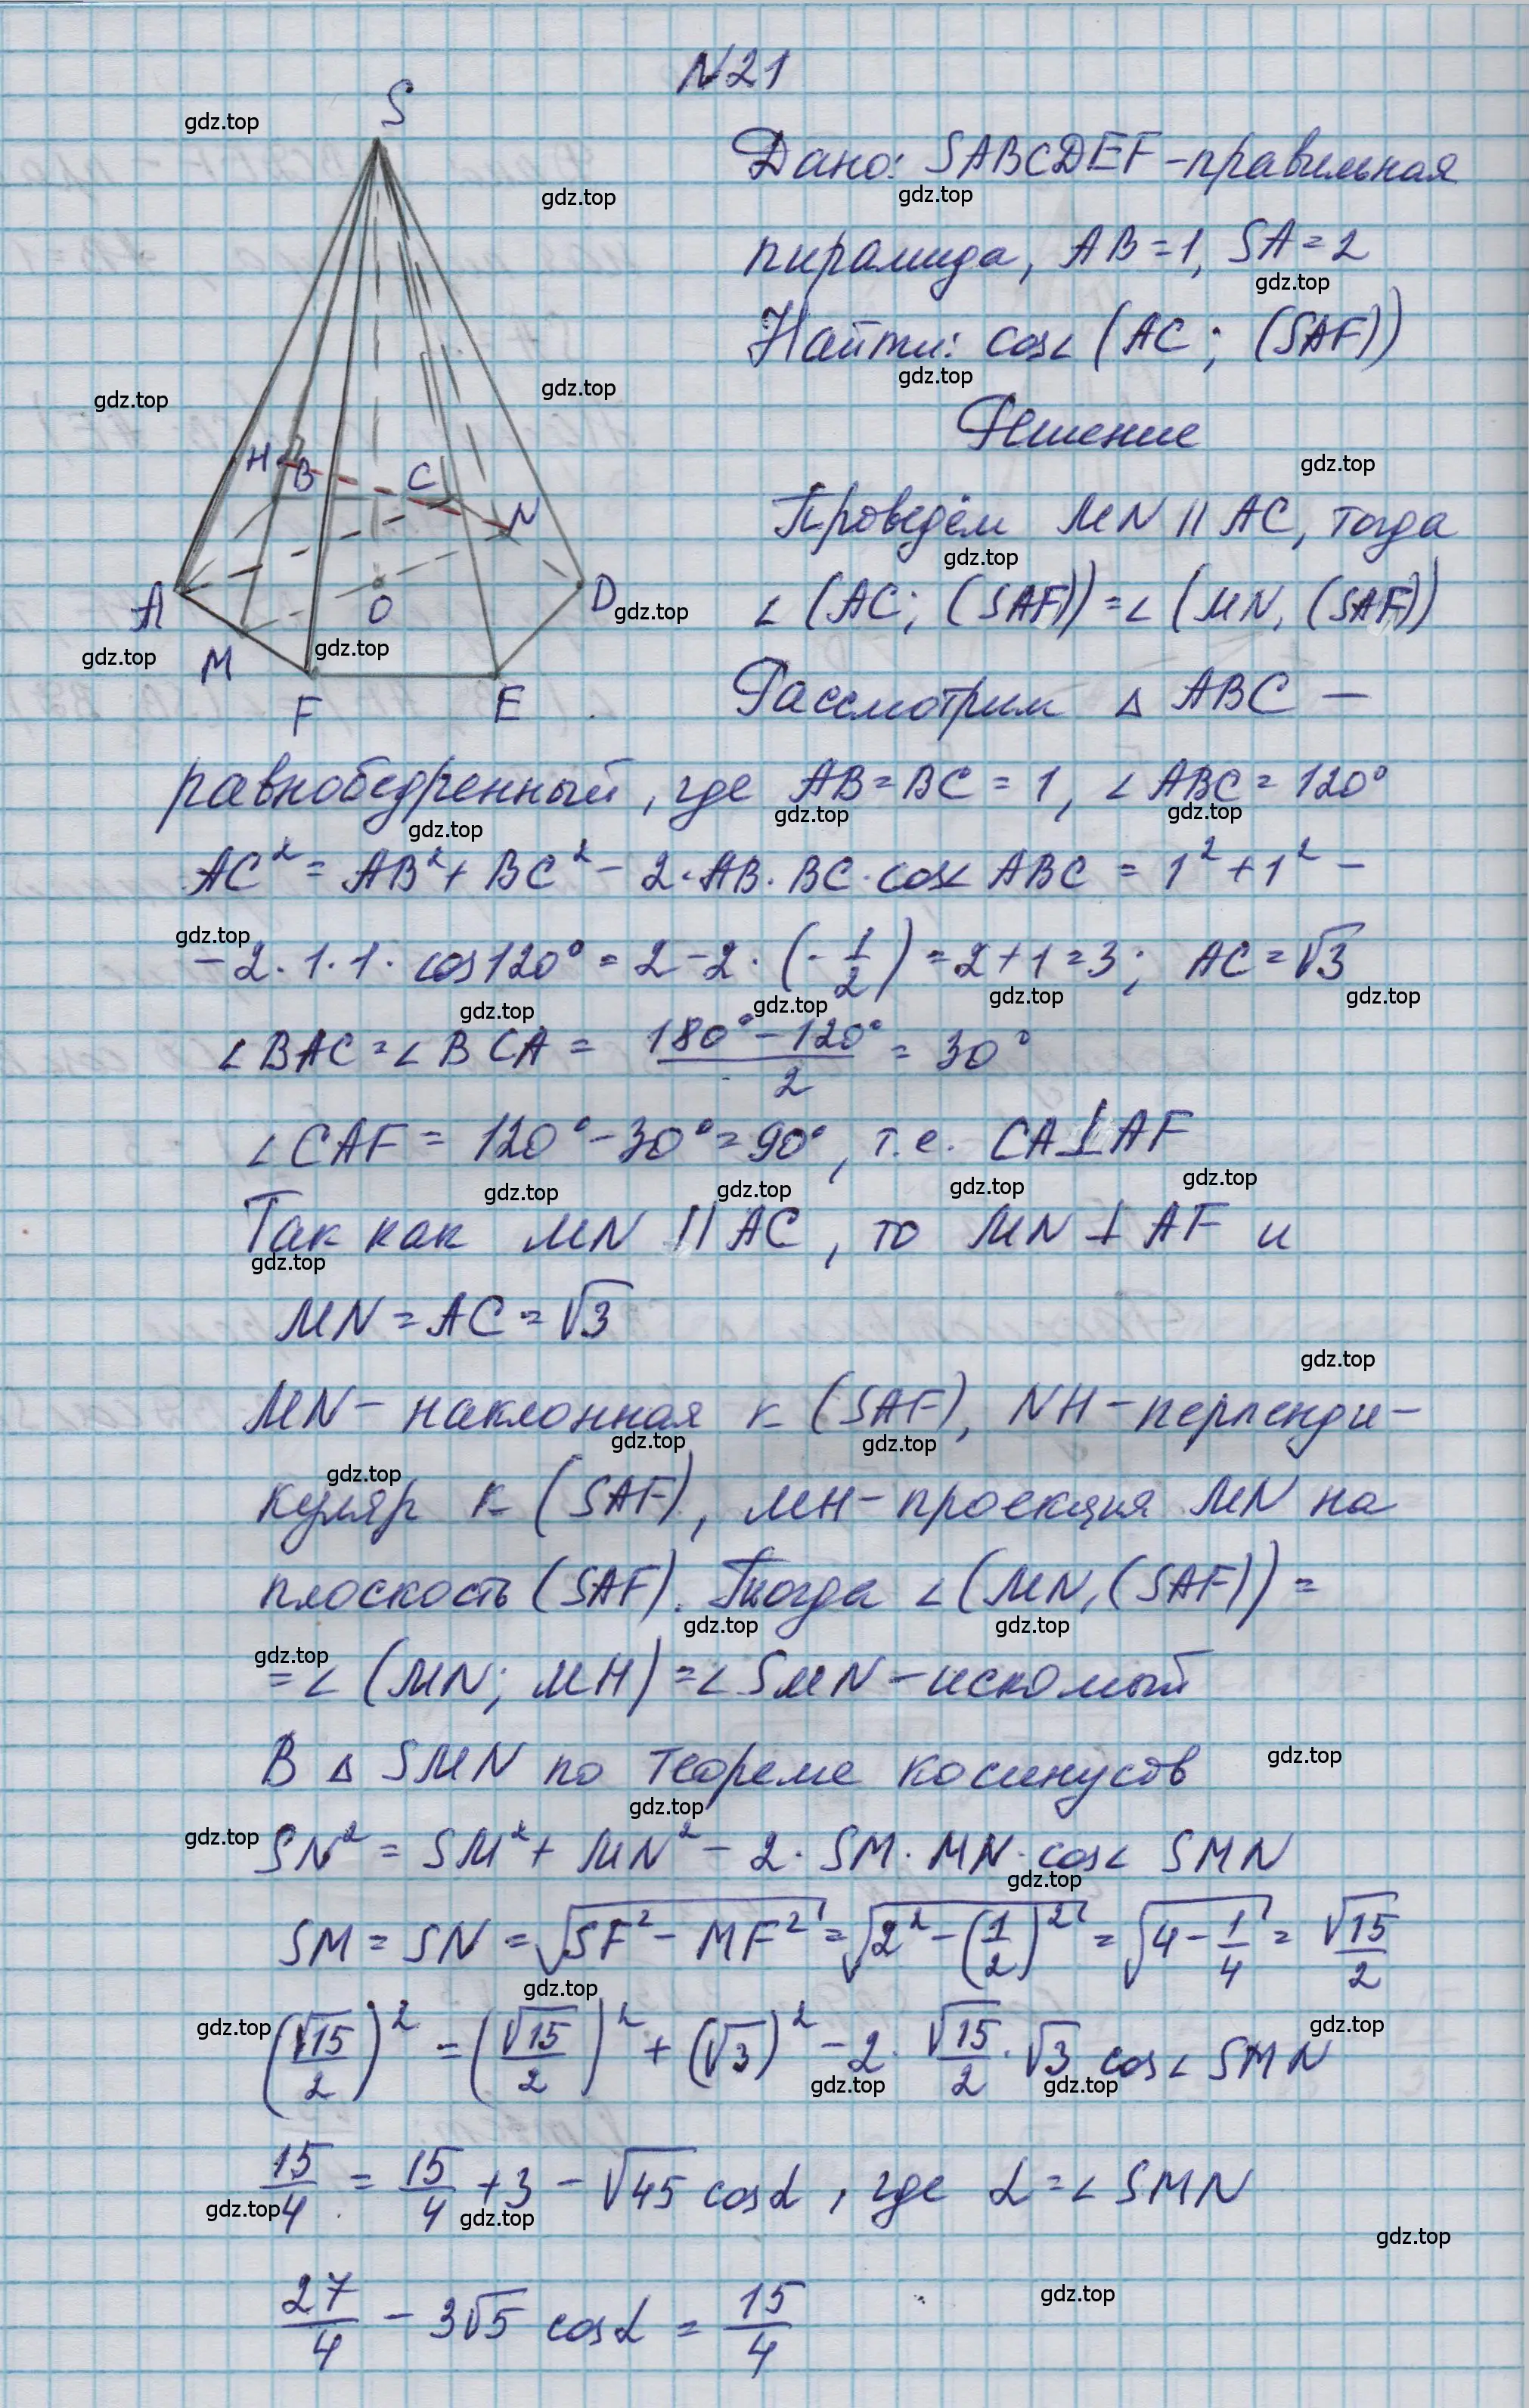 N21
S
Дано: SABCDEF - правильная
пирамида, AB = 1, SA = 2
Найти: cos∠(AC; (SAF))
Решение
H
B
C
N
A
O
D
M
F
E
Проведём MN || AC, тогда
∠(AC; (SAF)) = ∠(MN, (SAF))
Рассмотрим △ ABC –
равнобедренный, где AB = BC = 1, ∠ABC = 120°
AC² = AB² + BC² – 2·AB·BC·cos∠ABC = 1² + 1² –
– 2·1·1·cos120° = 2 – 2·(–1/2) = 2 + 1 = 3; AC = √3
∠BAC = ∠BCA = (180° – 120°)/2 = 30°
∠CAF = 120° – 30° = 90°, т.е. CA ⊥ AF
Так как MN || AC, то MN ⊥ AF и
MN = AC = √3
MN – наклонная к (SAF), NH – перпенди-
куляр к (SAF), MH – проекция MN на
плоскость (SAF). Тогда ∠(MN, (SAF)) =
= ∠(MN; MH) = ∠SMN – искомый
В △ SMN по теореме косинусов
SN² = SM² + MN² – 2·SM·MN·cos∠SMN
SM = SN = √(SF² – MF²) = √(2² – (1/2)²) = √(4 – 1/4) = √15/2
(√15/2)² = (√15/2)² + (√3)² – 2·√15/2·√3 cos∠SMN
15/4 = 15/4 + 3 – √45 cosα, где α = ∠SMN
27/4 – 3√5 cosα = 15/4
gdz.top